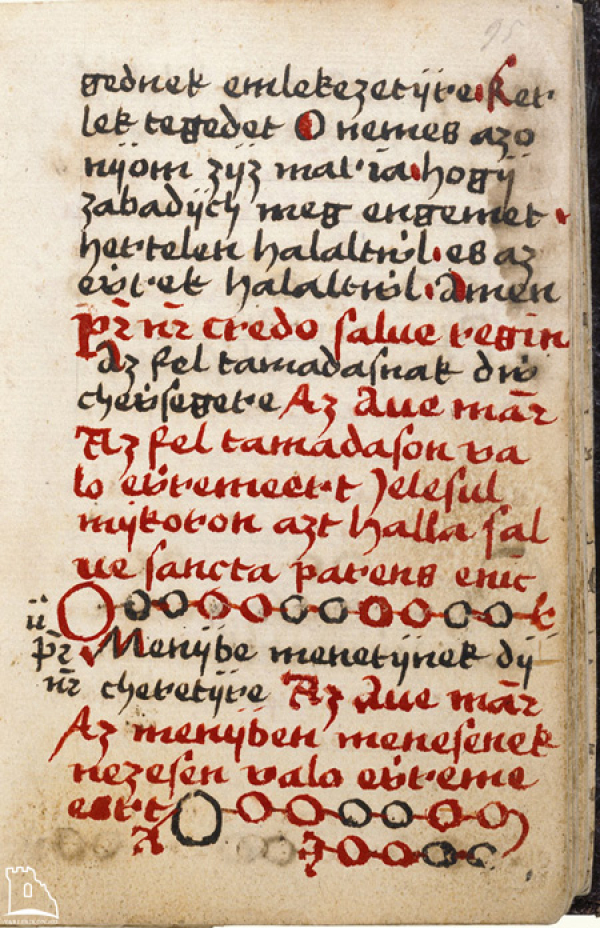 95
gednek emlekezetÿre. Ker
lek tegedet O nemes azo
nÿom zÿz maria. hogÿ
zabadÿcÿ meg engemet.
hertelen halaltwl. es az
evrek halaltwl. Amen
pr̃ nr̃ credo salue regin
Az fel tamadasnak dw
chevsegere Az Aue mar̃
Az fel tamadason va
lo evremeert Jelesul
mÿkoron azt halla sal
ue sancta parens enic
ÿ O k
pr̃ Menÿbe menetÿnek dÿ
nr̃ cheretÿre Az Aue mar̃
Az menÿben menesenek
nezesen valo evreme
ert O
A